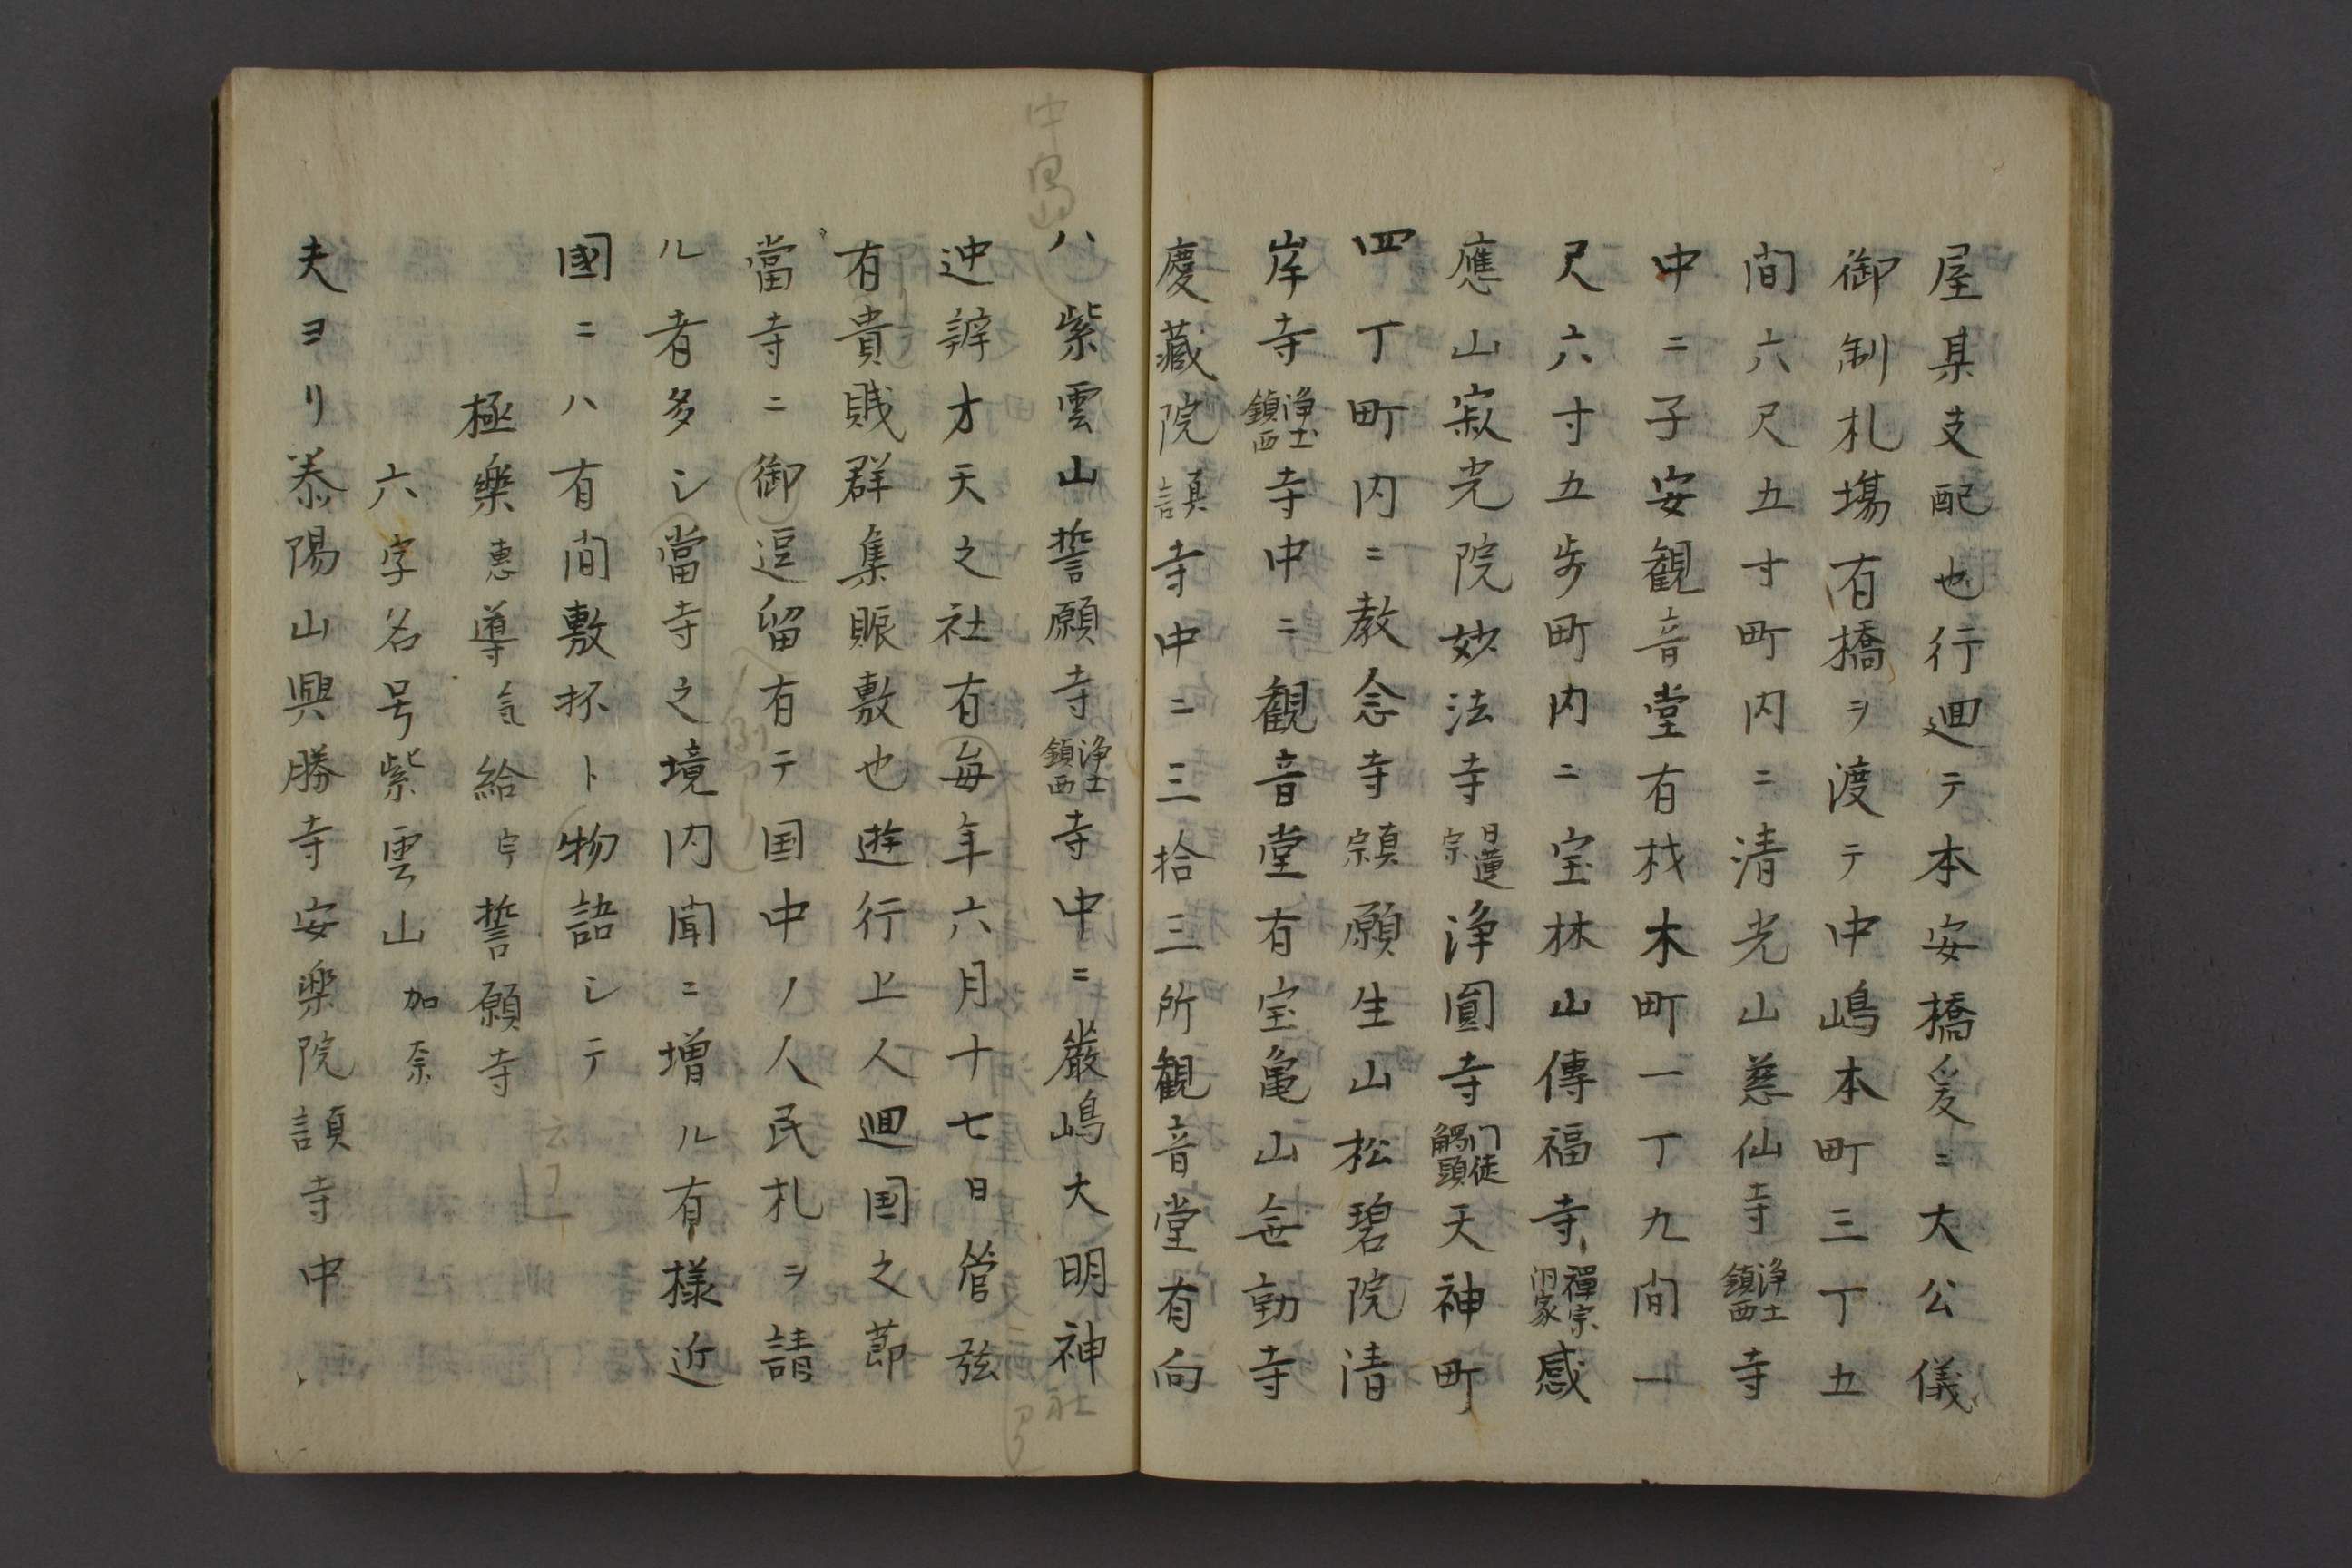 屋某支配也行廻テ本安橋爰ニ大公儀
御制札場有橋ヲ渡テ中嶋本町三丁五
間六尺五寸町内ニ清光山慈仙寺浄土鎮西寺
中ニ子安観音堂有材木町一丁九間一
尺六寸五歩町内ニ宝林山傳福寺禪宗汨家感
應山寂光院妙法寺日蓮宗浄圓寺门徒觸頭天神町
四丁町内ニ教念寺真宗願生山松碧院清
岸寺浄土鎮西寺中ニ観音堂有宝亀山無動寺
慶蔵院真言寺中ニ三拾三所観音堂有向
ハ紫雲山誓願寺浄土鎮西寺中ニ嚴嶋大明神
迚辧才天之社有毎年六月十七日管弦
有貴賎群集賑敷也遊行上人廻国之莭
當寺ニ御逗留有テ国中ノ人民札ヲ請
ル者多シ當寺之境内聞ニ増ル有様近
國ニハ有間敷抔ト物語シテ
極樂惠導給誓願寺
六字名号紫雲山加奈
夫ヨリ泰陽山興勝寺安楽院真言寺中